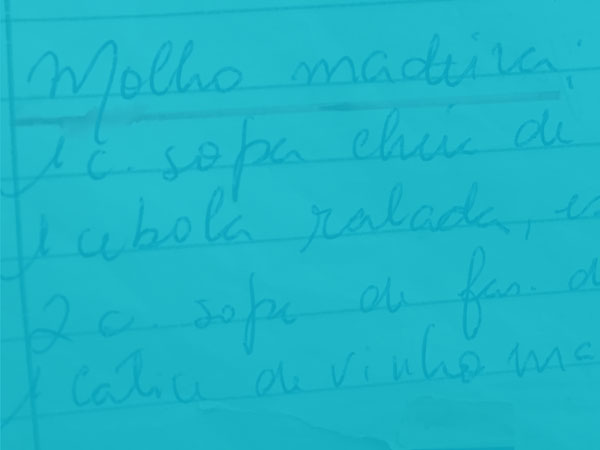 Molho madeira:
1 c. sopa cheia de
1 cebola ralada, e
2 c. sopa de far. d
1 cálice de vinho ma